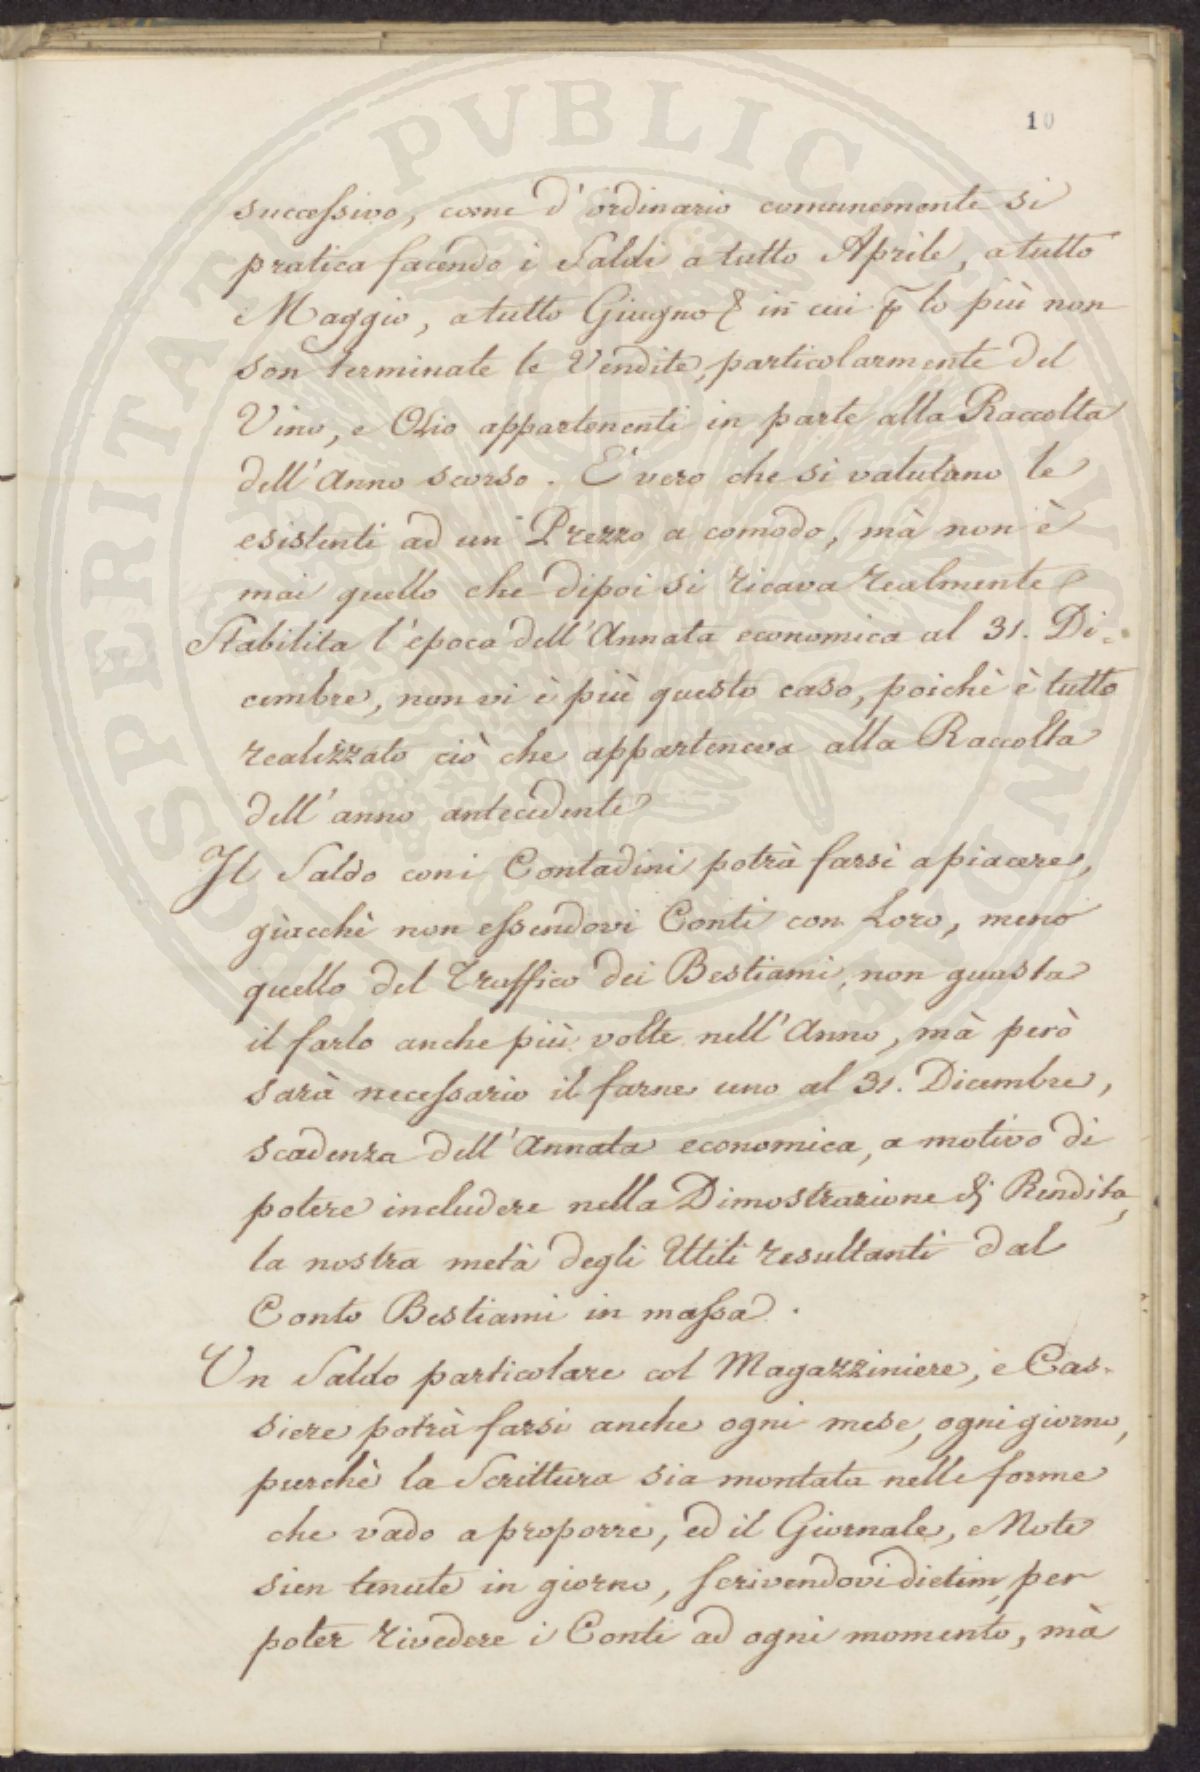 PROSPERITATI PVBLICAE AVGENDAE
10
successivo, come d'ordinario comunemente si
pratica facendo i Saldi a tutto Aprile, a tutto
Maggio, a tutto Giugno & in cui p lo più non
son terminate le Vendite, particolarmente del
Vino, e Olio appartenenti in parte alla Raccolta
dell'Anno scorso. E' vero che si valutano le
esistenti ad un Prezzo a comodo, mà non è
mai quello che dipoi si ricava realmente
Stabilita l'epoca dell'Annata economica al 31. Di-
cembre, non vi è più questo caso, poichè è tutto
realizzato ciò che apparteneva alla Raccolta
dell'anno antecedente
Il Saldo coni Contadini potrà farsi a piacere,
giacchè non essendovi Conti con Loro, meno
quello del Traffico dei Bestiami, non guasta
il farlo anche più volte nell'Anno, mà però
sarà necessario il farne uno al 31. Dicembre,
scadenza dell'Annata economica, a motivo di
potere includere nella Dimostrazione di Rendita,
la nostra metà degli Utili resultanti dal
Conto Bestiami in massa.
Un Saldo particolare col Magazziniere, e Cas-
siere potrà farsi anche ogni mese, ogni giorno,
purchè la Scrittura sia montata nelle forme
che vado a proporre, ed il Giornale, e Note
sien tenute in giorno, scrivendovi dietim, per
poter rivedere i Conti ad ogni momento, mà